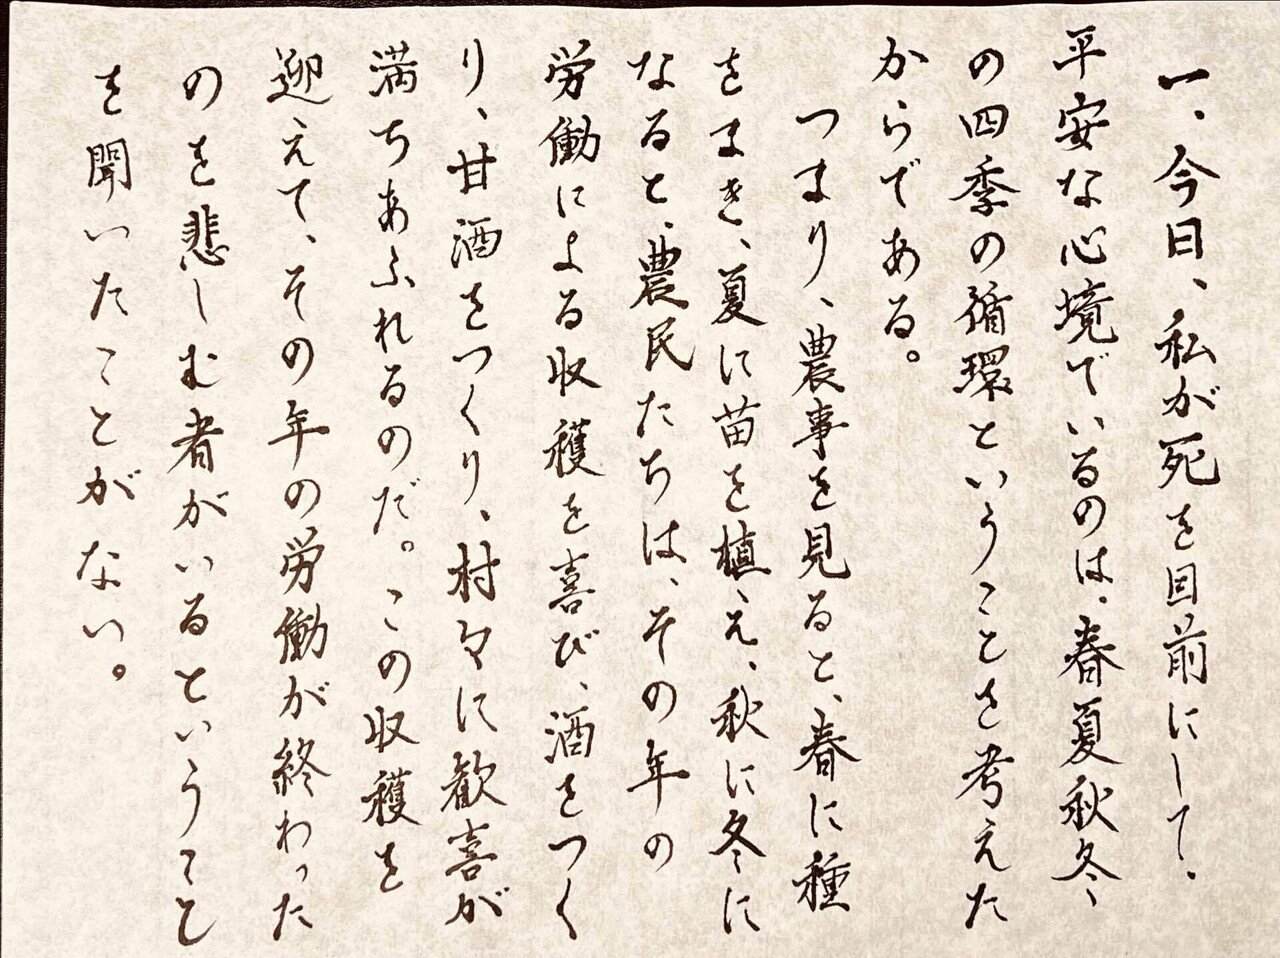 一、今日、私が死を目前にして、
平安な心境でいるのは、春夏秋冬
の四季の循環ということを考えた
からである。
つまり、農事を見ると、春に種
をまき、夏に苗を植え、秋に冬に
なると、農民たちは、その年の
労働による収穫を喜び、酒をつく
り、甘酒をつくり、村々に歓喜が
満ちあふれるのだ。この収穫を
迎えて、その年の労働が終わった
のを悲しむ者がいるということ
を聞いたことがない。